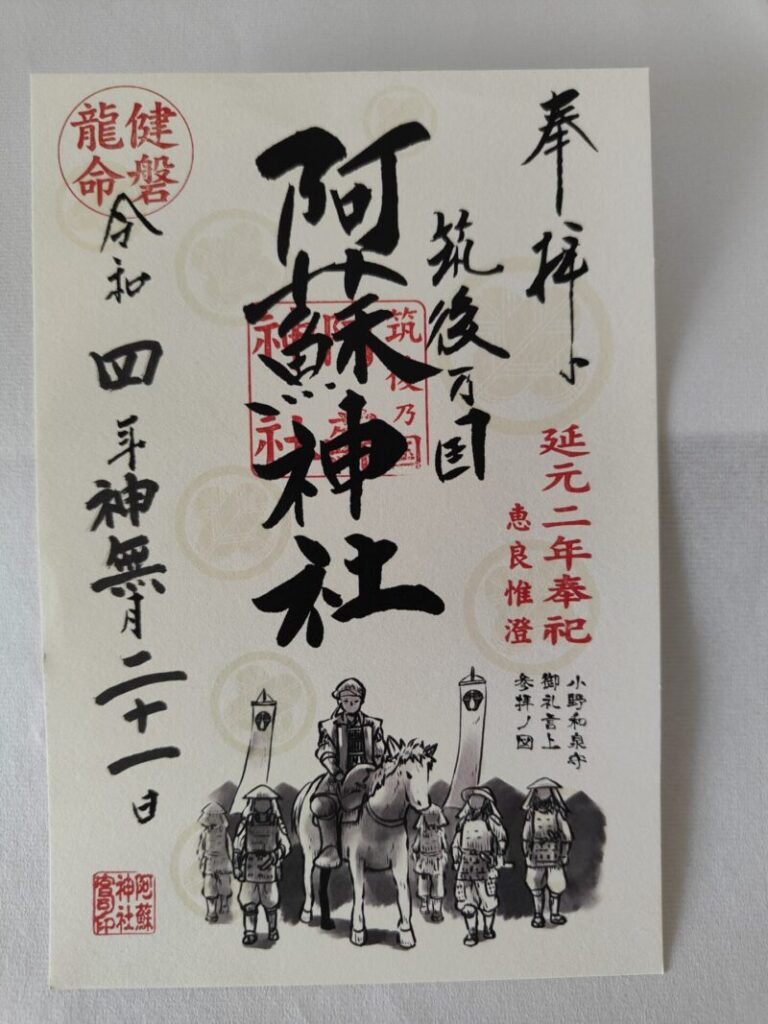 奉拝
延元二年奉祀
恵良惟澄
小野和泉守
御礼言上
参拝ノ図
筑後乃国
阿蘇神社
筑後乃国
阿蘇
神社
健磐
龍命
令和四年神無月二十一日
阿蘇
神社
宮司印